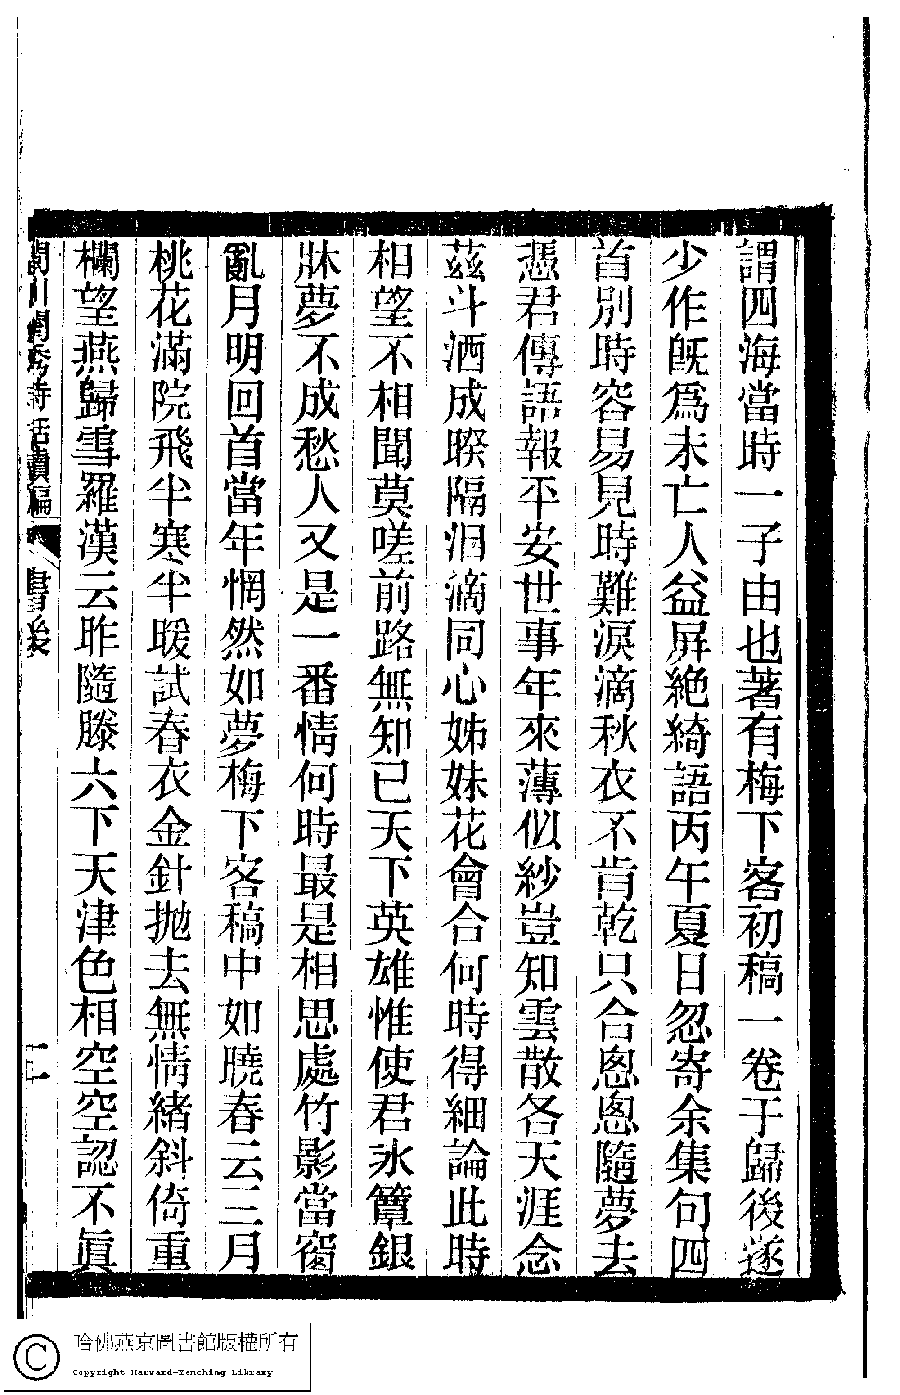 謂四海當時一子由也著有梅下客初稿一卷于歸後遂
少作旣爲未亡人益屏絶綺語丙午夏日忽寄余集句四
首別時容易見時難淚滴秋衣不肯乾只合悤悤隨夢去
憑君傳語報平安世事年來薄似紗豈知雲散各天涯念
茲斗酒成暌隔泪滴同心姊妹花會合何時得細論此時
相望不相聞莫嗟前路無知已天下英雄惟使君氷簟銀
牀夢不成愁人又是一番情何時最是相思處竹影當窗
亂月明回首當年惘然如夢梅下客稿中如曉春云三月
桃花滿院飛半寒半暖試春衣金針拋去無情緒斜倚重
欄望燕歸雪羅漢云昨隨滕六下天津色相空空認不眞
閩川閨秀詩話續編
書後
二
哈佛燕京圖書館版權所有
Copyright Harvard-Yenching Library